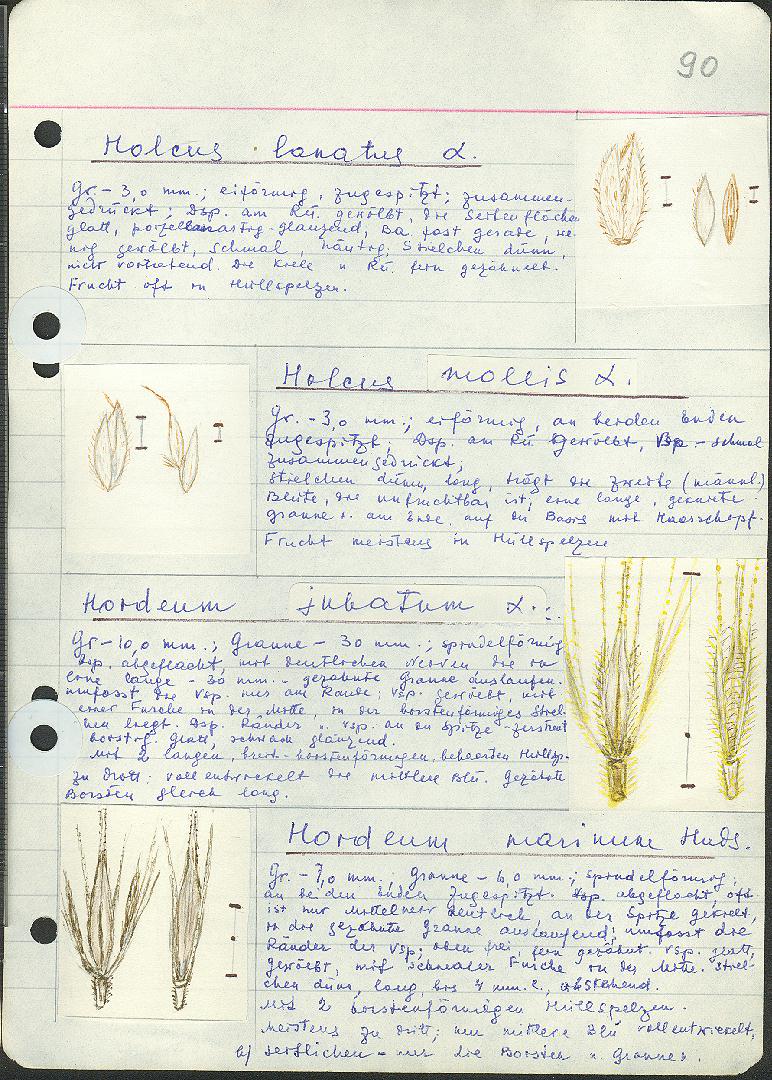 90
Holcus lanatus L.
Gr. - 3,0 mm.; eiförmig, zugespitzt; zusammen-
gedrückt; Dsp. am Rü. gewölbt, die Seitenflächen
glatt, glänzend, Ba. fast gerade, we-
nig gewölbt, schmal, häutig; Stielchen dünn,
nicht vortretend. Die Kiele u Rü. fein gezähnelt.
Frucht oft in Hüllspelzen.
Holcus mollis L.
Gr. - 3,0 mm.; eiförmig, an beiden Enden
zugespitzt; Dsp. am Rü gewölbt, Vsp - schmal
zusammengedrückt;
Stielchen dünn, lang, trägt die zweite (männl.)
Blüte, die unfruchtbar ist; eine lange, gekniete
Granne am Ende, auf die Basis mit Haarschopf.
Frucht meistens in Hüllspelzen
Hordeum jubatum L.
Gr - 10,0 mm.; Granne - 30 mm.; spindelförmig
Dsp. abgeflacht, mit deutlichen Nerven die in
eine lange - 30 mm. - gezähnte Granne auslaufen.
umfasst die Vsp. nur am Rande; Vsp. gewölbt, mit
einer Furche in der Mitte, in der borstenförmiges Stiel-
chen liegt. Dsp. Ränder u. Vsp. an der Spitze - zerstreut
borstig. glatt, schwach glänzend.
Mit 2 langen, breit-borstenförmigen, behaarten Hüllsp.
zu dritt; voll entwickelt die mittlere Blü. gezähnte
Borsten gleich lang.
Hordeum marinum Huds.
Gr. - 7,0 mm.; Granne - 6,0 mm.; spindelförmig;
an beiden Enden zugespitzt. Dsp. abgeflacht, oft
ist nur Mittelnerv deutlich, an der Spitze gekielt,
in die gezähnte Granne auslaufend; umfasst die
Ränder der Vsp; oben frei, fein gezähnt. Vsp. glatt,
gewölbt, mit schmaler Furche in der Mitte. Stiel-
chen dünn, lang bis 4 mm. l., abstehend.
Mit 2 borstenförmigen Hüllspelzen.
Meistens zu dritt; nur mittlere Blü vollentwickelt,
seitlichen - nur die Borsten u. Grannen.